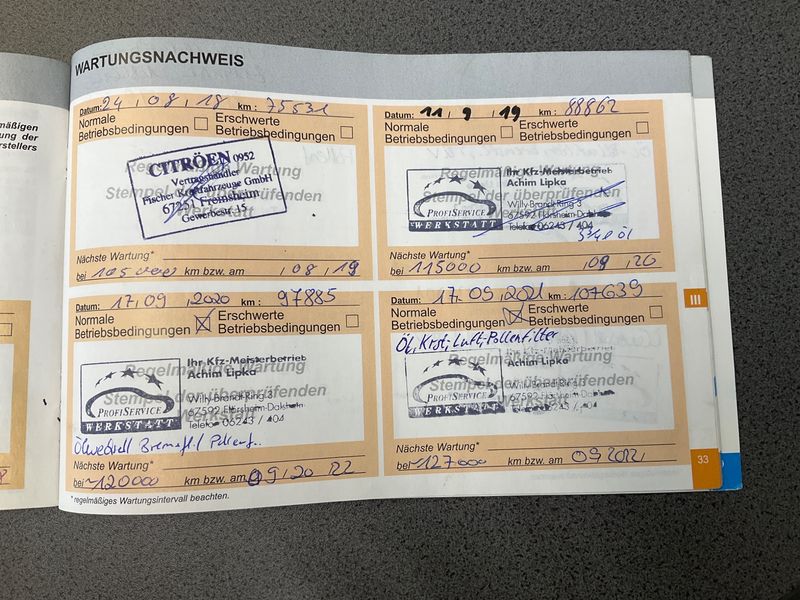 mäßigen
ung der
rstellers
WARTUNGSNACHWEIS
Datum: 24 , 08 , 18 km: 75531
Normale
Betriebsbedingungen
Erschwerte
Betriebsbedingungen
Regelmäßige Wartung
Stempel des überprüfenden
Werkstatt
CITRÖEN 0952
Vertragshändler
Fischer Kraftfahrzeuge GmbH
67251 Freinsheim
Gewerbestr. 15
Nächste Wartung*
bei 105000 km bzw. am , 08 , 19
Datum: 11 , 9 , 19 km: 88862
Normale
Betriebsbedingungen
Erschwerte
Betriebsbedingungen
PROFISERVICE
WERKSTATT
Ihr Kfz-Meisterbetrieb
Achim Lipka
Willy-Brandt-Ring 3
67592 Flörsheim-Dalsheim
Telefon 06243 / 404
Öl
Nächste Wartung*
bei 115000 km bzw. am , 09 , 20
Datum: 17 , 09 , 2020 km: 97885
Normale
Betriebsbedingungen
Erschwerte
Betriebsbedingungen
PROFISERVICE
WERKSTATT
Ihr Kfz-Meisterbetrieb
Achim Lipka
Willy-Brandt-Ring 3
67592 Flörsheim-Dalsheim
Telefon 06243 / 404
Ölwechsel Bremsfl. / Pollenf.
Nächste Wartung*
bei ~120000 km bzw. am 09 , 20 22
* regelmäßiges Wartungsintervall beachten.
Datum: 17 . 09 , 2021 km: 107639
Normale
Betriebsbedingungen
Erschwerte
Betriebsbedingungen
Öl, Krst-, Luft-, Pollenfilter
PROFISERVICE
WERKSTATT
Ihr Kfz-Meisterbetrieb
Achim Lipka
Willy-Brandt-Ring 3
67592 Flörsheim-Dalsheim
06243 / 404
Nächste Wartung*
bei ~127000 km bzw. am 09 2022
III
33